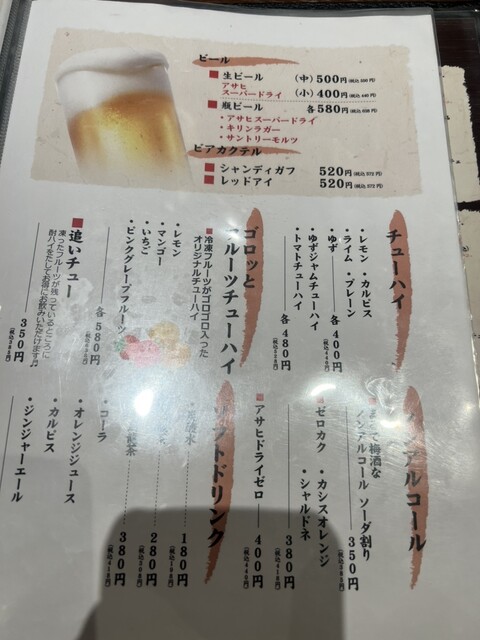 ビール
■生ビール （中）500円（税込 550円）
アサヒ
スーパードライ （小）400円（税込 440円）
■瓶ビール 各580円（税込 638円）
・アサヒスーパードライ
・キリンラガー
・サントリーモルツ
ビアカクテル
■シャンディガフ 520円（税込 572円）
■レッドアイ 520円（税込 572円）
チューハイ
・レモン ・カルピス
・ライム ・プレーン
・ゆず 各400円（税込440円）
・ゆずジャムチューハイ
・トマトチューハイ 各480円（税込528円）
ゴロッと
フルーツチューハイ
■冷凍フルーツがゴロゴロ入った
オリジナルチューハイ
・レモン
・マンゴー
・いちご
・ピンクグレープフルーツ
各580円（税込638円）
■追いチュー
凍ったフルーツが残っているところに
酎ハイをたしてお得にお飲みいただけます♬
350円（税込385円）
ノンアルコール
梅酒な
ノンアルコール ソーダ割り
350円（税込385円）
■ゼロカク ・カシスオレンジ
・シャルドネ
380円（税込418円）
■アサヒドライゼロ 400円（税込440円）
ソフトドリンク
180円（税込198円）
280円（税込308円）
380円（税込418円）
・コーラ
・オレンジジュース
・カルピス
・ジンジャーエール